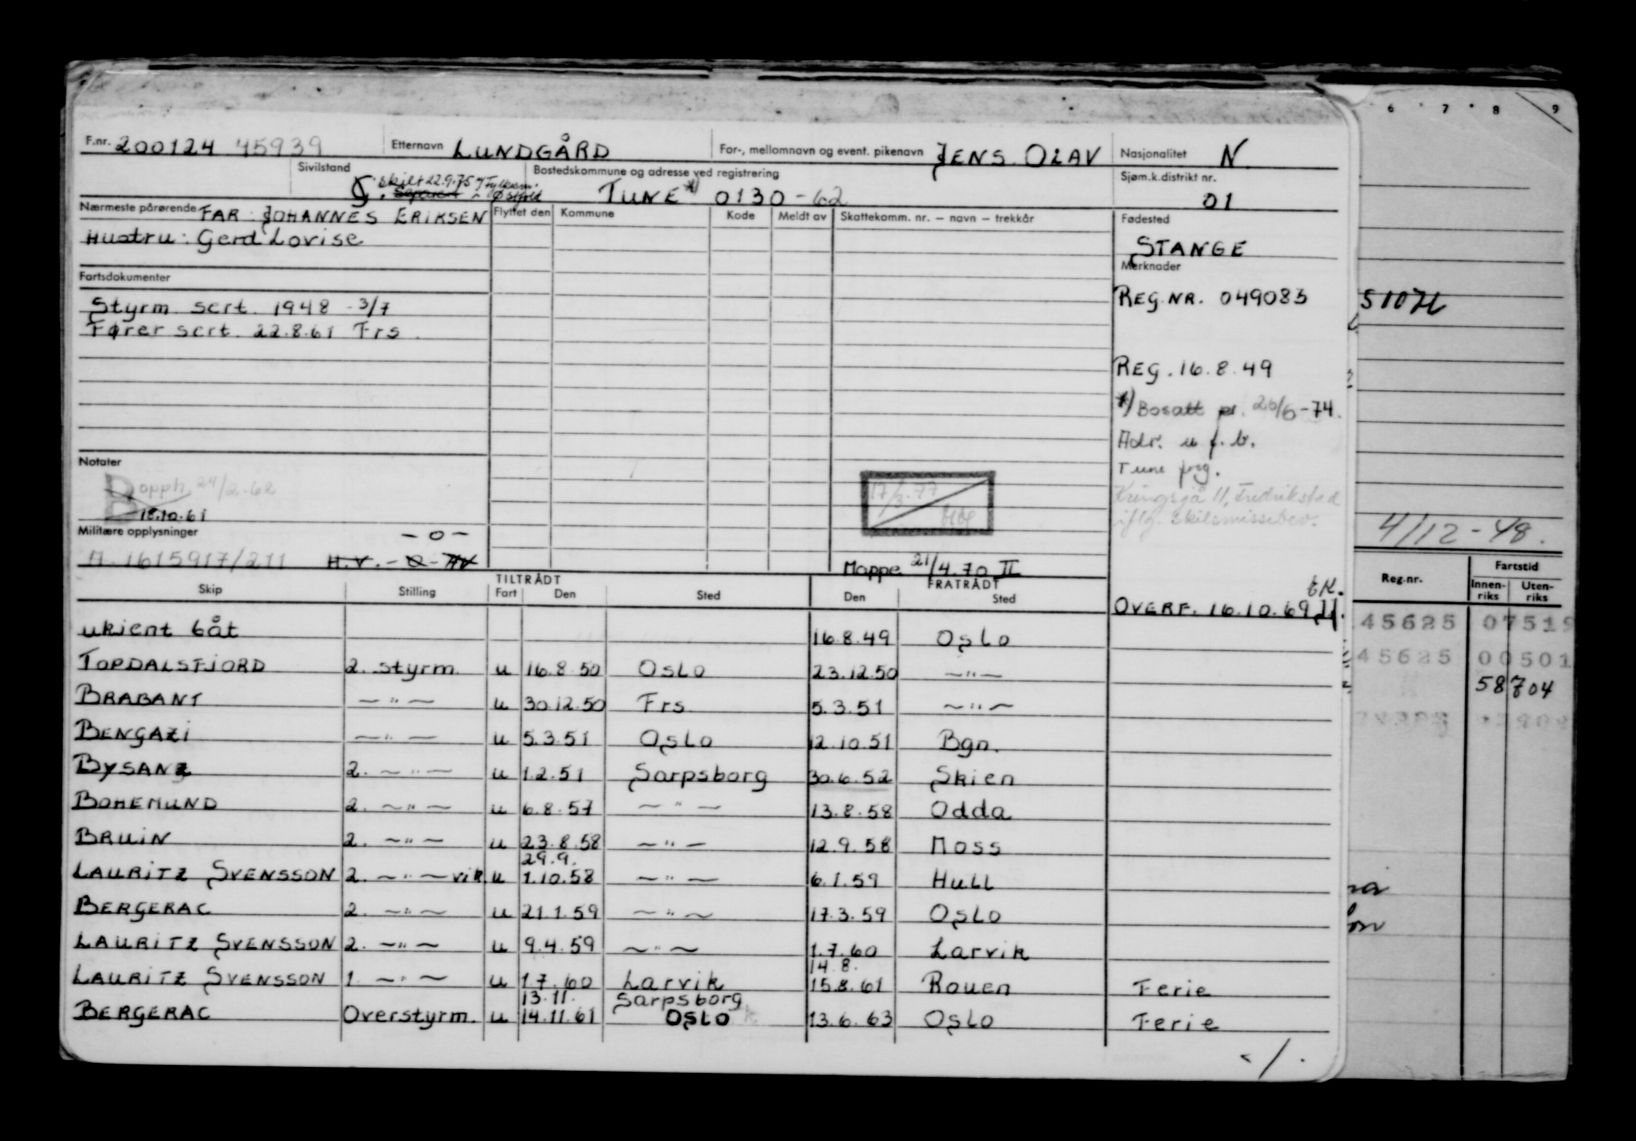 6 7 8 9
F.nr. 200124 45939 Etternavn LUNDGÅRD For-, mellomnavn og event. pikenavn JENS OLAV Nasjonalitet N
Sivilstand skilt 22.9.75 Bostedskommune og adresse ved registrering TUNE *) 0130-62 Sjøm.k.distrikt nr. 01
Nærmeste pårørende FAR: JOHANNES ERIKSEN Flyttet den Kommune Kode Meldt av Skattekomm. nr. – navn – trekkår Fødested
Hustru: Gerd Lovise STANGE
Fartsdokumenter Merknader
Styrm sert. 1948 3/7 REG.NR. 049083
Fører sert. 22.8.61 Frs.
REG. 16.8.49
*) Bosatt pr. 20/6-74.
Adr. u f. b.
Tune prg.
Notater
B opph 24/2-62 17/3-77 Kringsjå 11, Fredrikstad
18.10.61 iflg. skilsmissebev.
Militære opplysninger -0- 4/12-48.
M. 1615917/211 H.V. Mappe 21/4.70 II
TILTRÅDT FRATRÅDT
Skip Stilling Fart Den Sted Den Sted OVERF. 16.10.69 Reg.nr. Fartstid Innen-riks Uten-riks
ukjent båt 16.8.49 Oslo 45625 07519
TOPDALSFJORD 2. styrm. u 16.8.50 Oslo 23.12.50 —"— 45625 00501
BRABANT —"— u 30.12.50 Frs 5.3.51 —"— 58704
BENGAZI —"— u 5.3.51 Oslo 12.10.51 Bgn.
BYSANZ 2. —"— u 1.2.51 Sarpsborg 30.6.52 Skien
BOHEMUND 2. —"— u 6.8.57 —"— 13.8.58 Odda
BRUIN 2. —"— u 23.8.58 —"— 12.9.58 Moss
29.9.
LAURITZ SVENSSON 2. —"— vik u 1.10.58 —"— 6.1.59 Hull
BERGERAC 2. —"— u 21.1.59 —"— 17.3.59 Oslo
LAURITZ SVENSSON 2. —"— u 9.4.59 —"— 1.7.60 Larvik
14.8.
LAURITZ SVENSSON 1. —"— u 1.7.60 Larvik 15.8.61 Rouen Ferie
13.11. Sarpsborg
BERGERAC Overstyrm. u 14.11.61 OSLO 13.6.63 Oslo Ferie